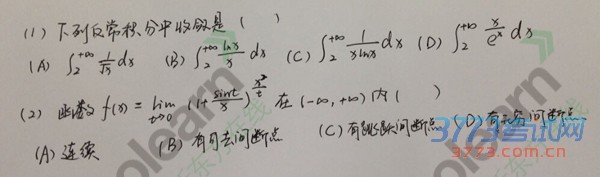 (1) 下列反常积分中收敛是 ( )
(A) ∫₂^{+∞} 1/√x dx (B) ∫₂^{+∞} lnx/x dx (C) ∫₂^{+∞} 1/(xlnx) dx (D) ∫₂^{+∞} x/eˣ dx
(2) 函数 f(x) = lim_{t→0} (1+ sint/x)^{x²/t} 在 (-∞, +∞) 内 ( )
(A) 连续 (B) 有可去间断点 (C) 有跳跃间断点 (D) 有无穷间断点
3773考试网
3773.com.cn